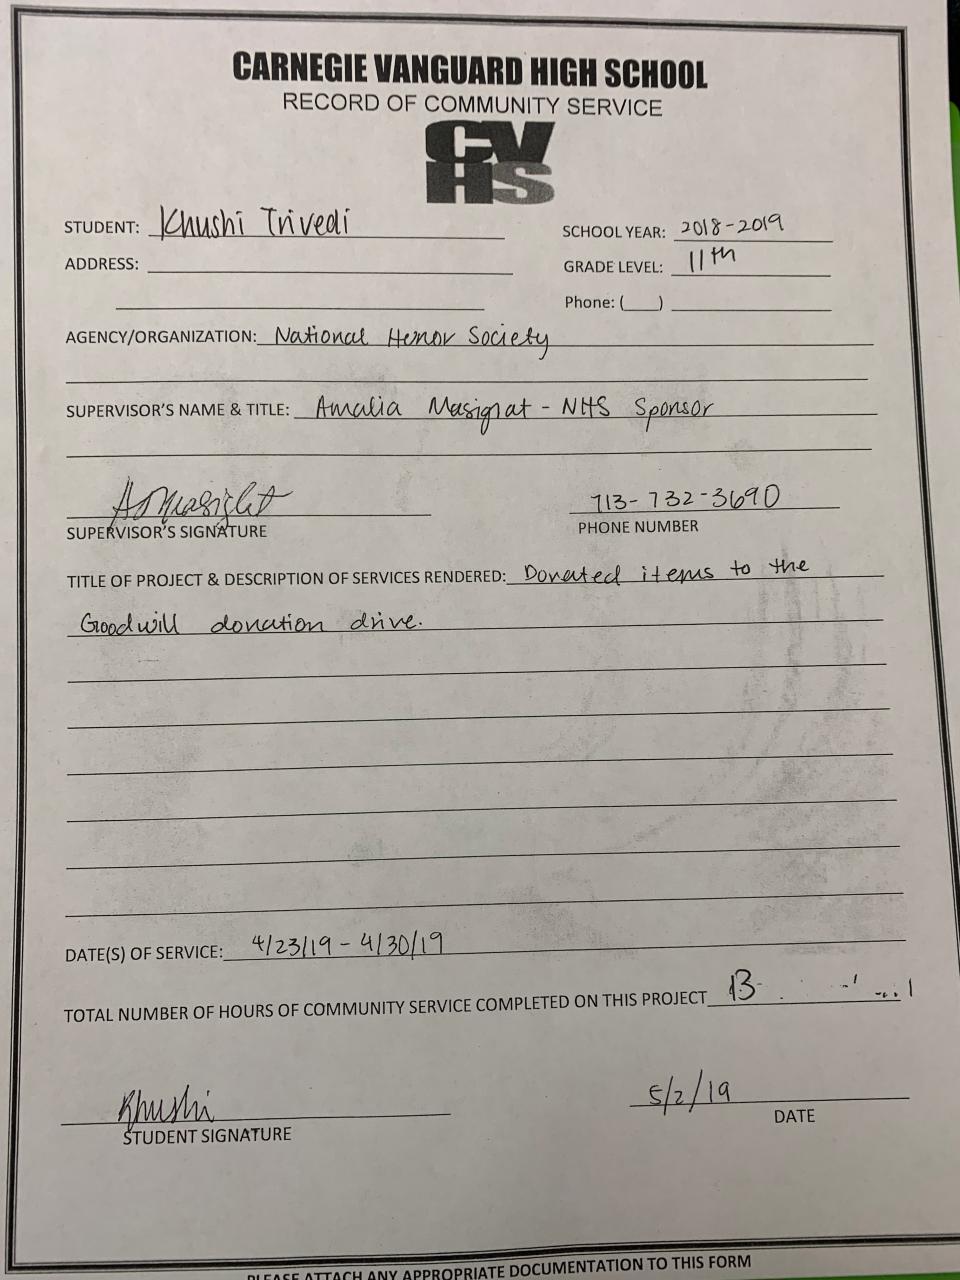 CARNEGIE VANGUARD HIGH SCHOOL
RECORD OF COMMUNITY SERVICE
CV
HS
STUDENT: Khushi Trivedi
SCHOOL YEAR: 2018-2019
ADDRESS:
GRADE LEVEL: 11th
Phone: (   )
AGENCY/ORGANIZATION: National Honor Society
SUPERVISOR'S NAME & TITLE: Amalia Masignat - NHS Sponsor
713-732-3690
SUPERVISOR'S SIGNATURE
PHONE NUMBER
TITLE OF PROJECT & DESCRIPTION OF SERVICES RENDERED: Donated items to the
Goodwill donation drive.
DATE(S) OF SERVICE: 4/23/19 - 4/30/19
TOTAL NUMBER OF HOURS OF COMMUNITY SERVICE COMPLETED ON THIS PROJECT 13
Khushi
5/2/19
STUDENT SIGNATURE
DATE
PLEASE ATTACH ANY APPROPRIATE DOCUMENTATION TO THIS FORM